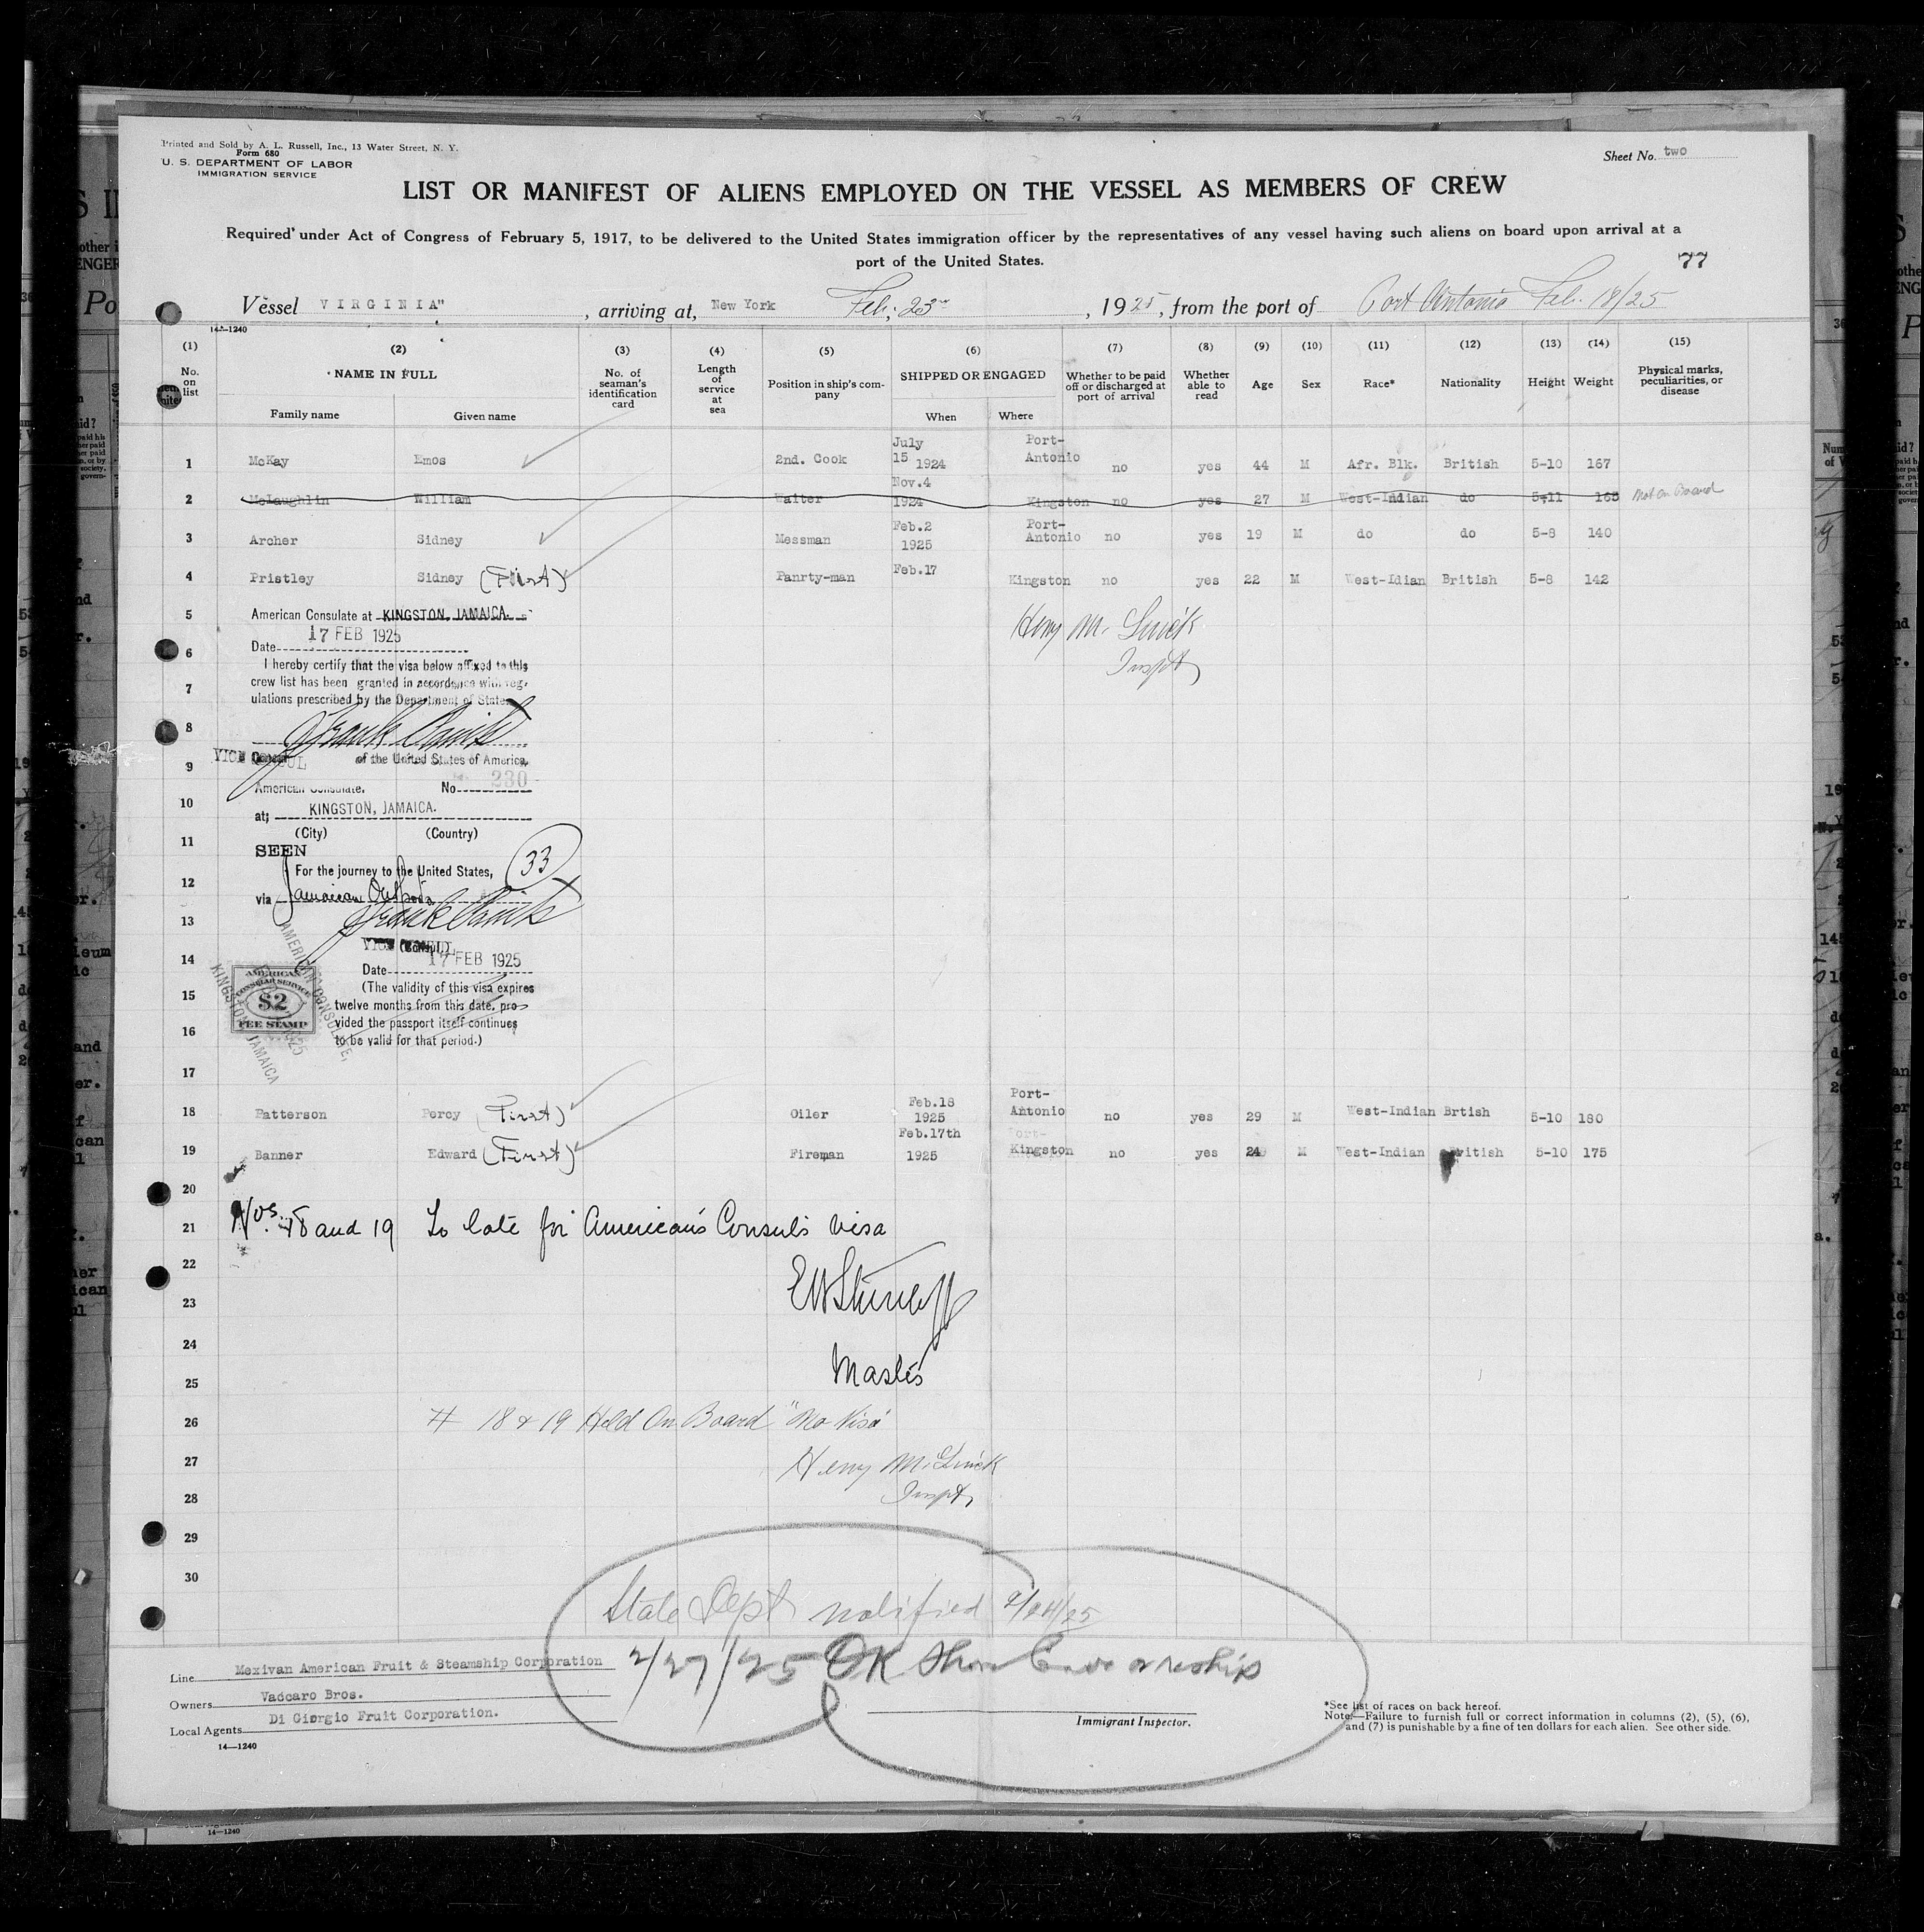 Printed and Sold by A. L. Russell, Inc., 13 Water Street, N. Y.
Form 680
U. S. DEPARTMENT OF LABOR
IMMIGRATION SERVICE
Sheet No. two
LIST OR MANIFEST OF ALIENS EMPLOYED ON THE VESSEL AS MEMBERS OF CREW
Required under Act of Congress of February 5, 1917, to be delivered to the United States immigration officer by the representatives of any vessel having such aliens on board upon arrival at a
port of the United States.
77
Vessel VIRGINIA" , arriving at, New York Feb. 23 , 1925, from the port of Port Antonio Feb. 18/25
14-1240
(1) (2) (3) (4) (5) (6) (7) (8) (9) (10) (11) (12) (13) (14) (15)
No. on list NAME IN FULL Family name Given name No. of seaman's identification card Length of service at sea Position in ship's company SHIPPED OR ENGAGED When Where Whether to be paid off or discharged at port of arrival Whether able to read Age Sex Race* Nationality Height Weight Physical marks, peculiarities, or disease
1 McKay Emos 2nd. Cook July 15 1924 Port-Antonio no yes 44 M Afr. Blk. British 5-10 167
2 McLaughlin William Waiter Nov.4 1924 Kingston no yes 27 M West-Indian do 5-11 165 Not on Board
3 Archer Sidney Messman Feb.2 1925 Port-Antonio no yes 19 M do do 5-8 140
4 Pristley Sidney (First) Panrty-man Feb.17 Kingston no yes 22 M West-Idian British 5-8 142
5 American Consulate at KINGSTON, JAMAICA.
17 FEB 1925
6 Date
Inspt
I hereby certify that the visa below affixed to this
7 crew list has been granted in accordance with reg-
ulations prescribed by the Department of State.
8
9 VICE CONSUL of the United States of America.
American Consulate. No. 230
10 at; KINGSTON, JAMAICA.
(City) (Country)
11 SEEN
For the journey to the United States,
33
12 via
13
VICE (Consul)
14 Date 17 FEB 1925
(The validity of this visa expires
15 twelve months from this date, pro-
vided the passport itself continues
16 to be valid for that period.)
AMERICAN CONSULAR SERVICE
$2
FEE STAMP
AMERICAN CONSULATE,
KINGSTON, JAMAICA
17
18 Patterson Percy (First) Oiler Feb.18 1925 Port-Antonio no yes 29 M West-Indian Brtish 5-10 180
19 Banner Edward (First) Fireman Feb.17th 1925 Kingston no yes 24 M West-Indian British 5-10 175
20
21 Nos. 18 and 19 To late for American's Consul's visa
22
23
24
25 Master
26 # 18 & 19 Held On Board "No Visa"
27
28 Inspt
29
30
State Dept notified 2/24/25
2/27/25 OK
Line Mexivan American Fruit & Steamship Corporation
Owners Vaccaro Bros.
Local Agents Di Giorgio Fruit Corporation.
14-1240
Immigrant Inspector.
*See list of races on back hereof.
Note.—Failure to furnish full or correct information in columns (2), (5), (6),
and (7) is punishable by a fine of ten dollars for each alien. See other side.
14-1240